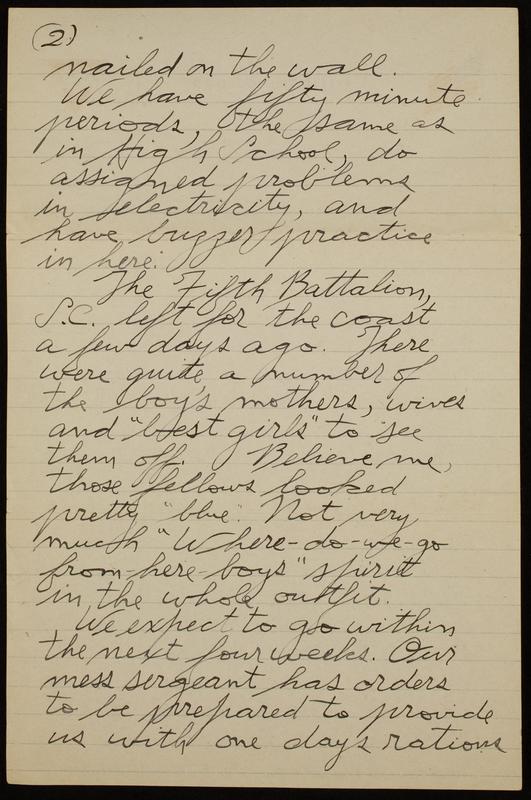 (2)
nailed on the wall.
We have fifty minute
periods, the same as
in High School, do
assigned problems
in electricity, and
have buzzer practice
in here.
The Fifth Battalion,
S.C. left for the coast
a few days ago. There
were quite a number of
the boys mothers, wives
and "best girls" to see
them off. Believe me,
those fellows looked
pretty "blue". Not very
much "Where-do-we-go
from-here-boys" spirit
in the whole outfit.
We expect to go within
the next four weeks. Our
mess sergeant has orders
to be prepared to provide
us with one days rations